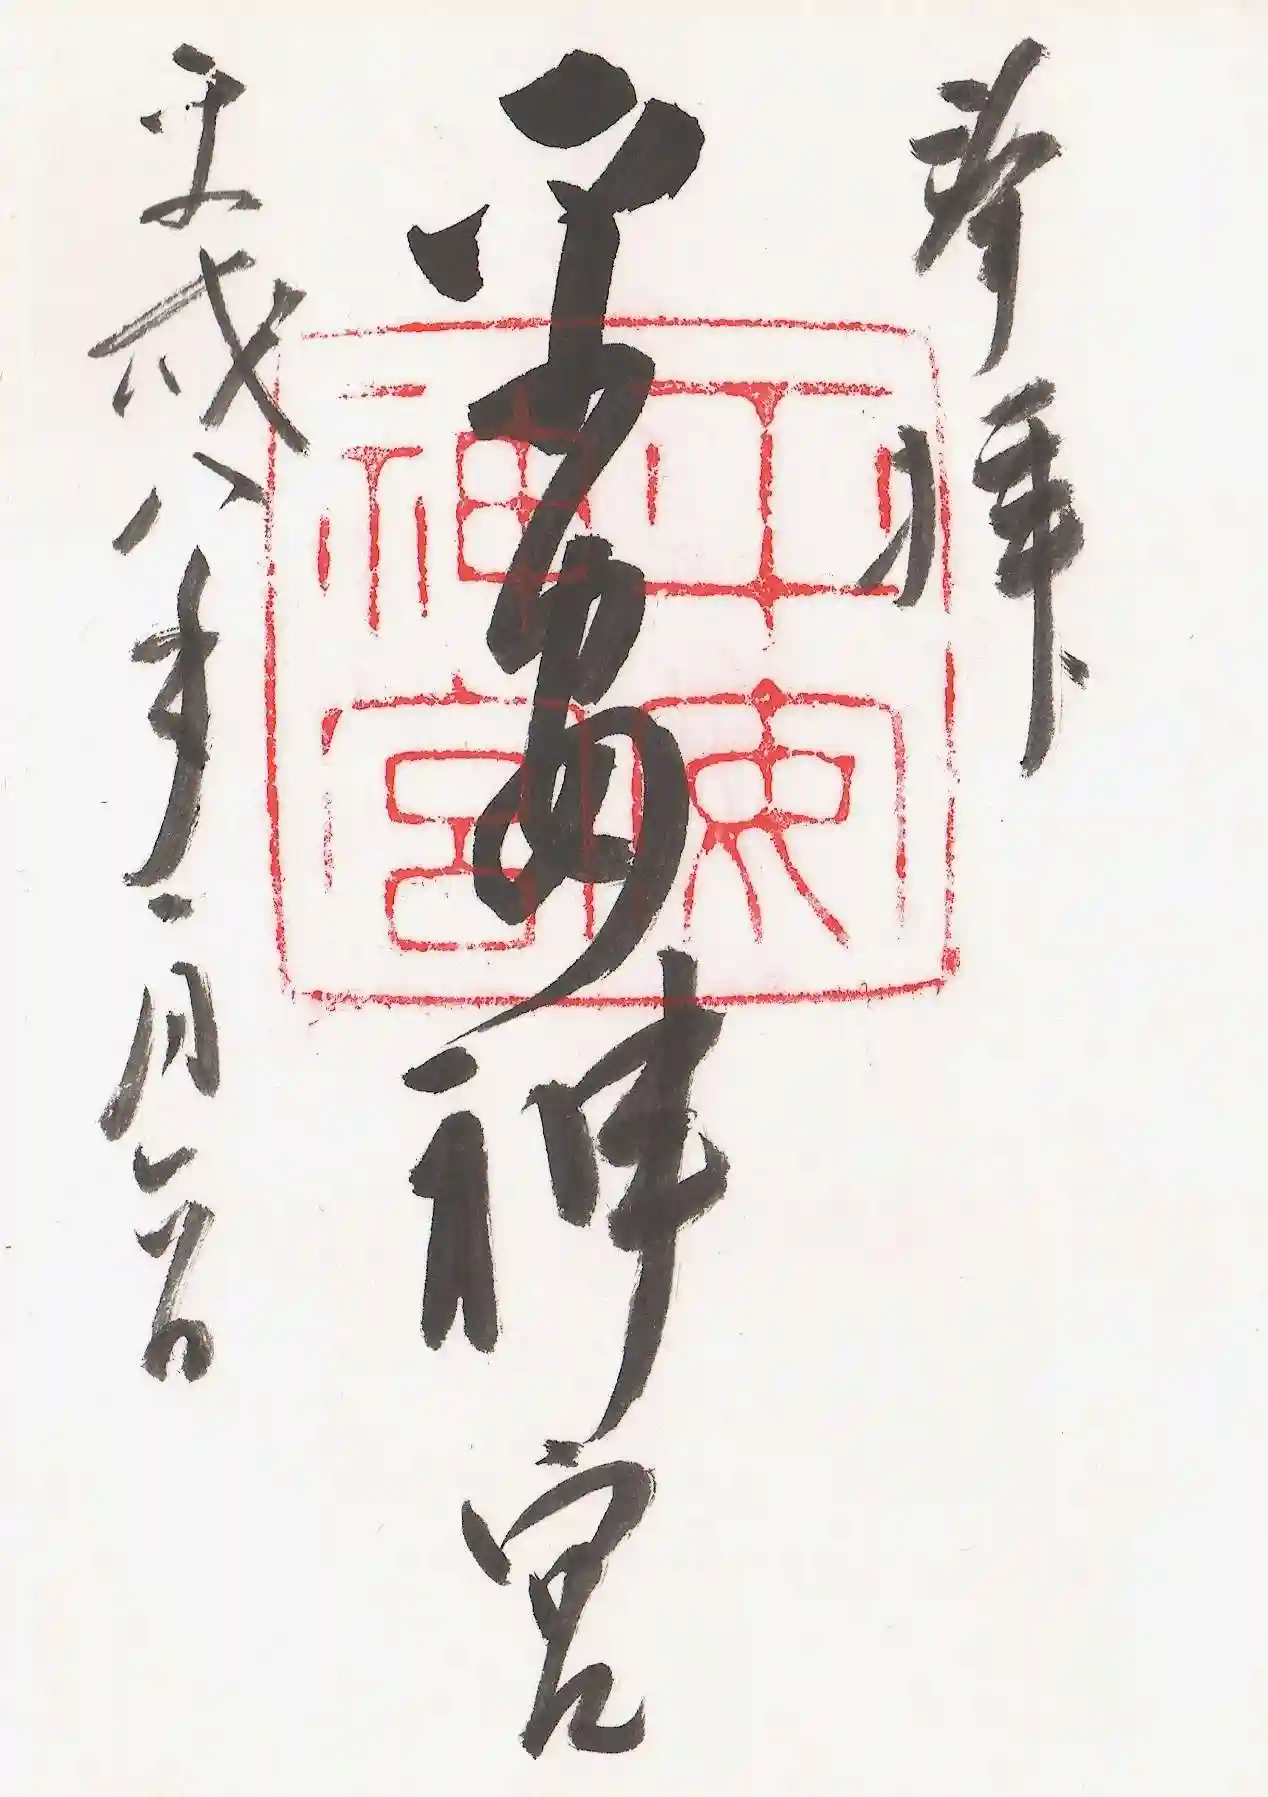 奉拝
平安神宮
平成八年一月日
平安
神宮